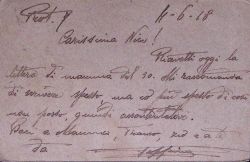 4-6-18
Carissima Nini!
Ricevetti oggi la
lettera di mamma del 30. Mi raccomanda
di scrivere spesso, ma ed più spesso di così
non posso, quindi accontentatevi.
Baci a mamma, zio e a te
da